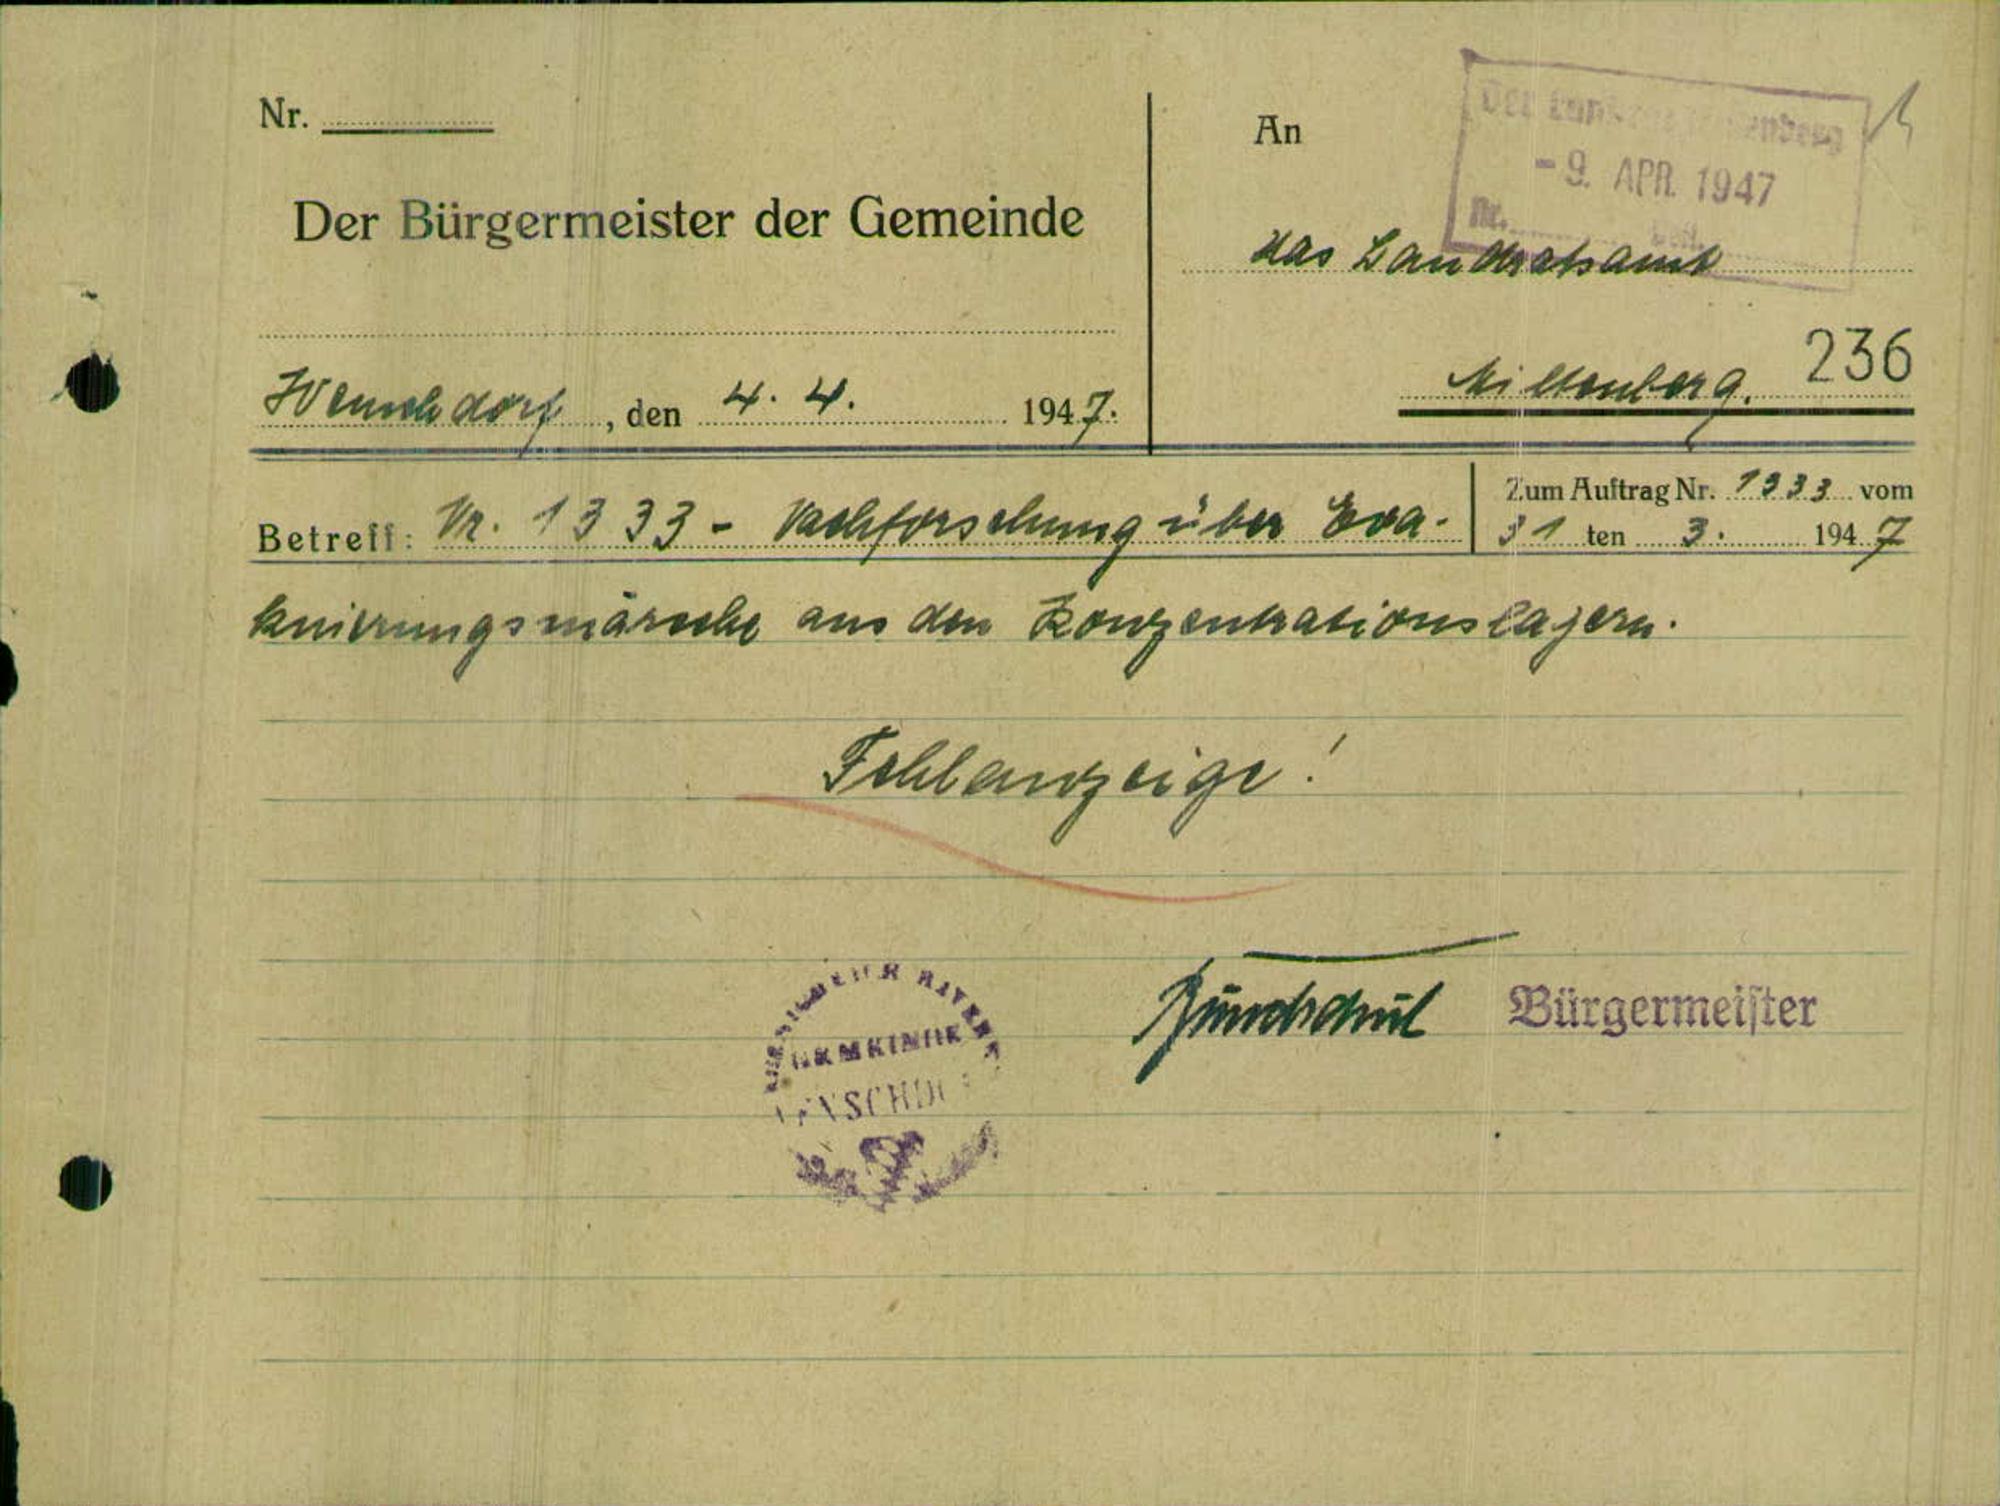 Nr.
Der Bürgermeister der Gemeinde
Wenschdorf, den 4. 4. 1947.
An
Der Landrat Miltenberg
- 9. APR. 1947
Nr. Beil.
das Landratsamt
Miltenberg.
236
Betreff: Nr. 1333 - Nachforschung über Eva-
Zum Auftrag Nr. 1333 vom
31 ten 3. 1947
kuierungsmärsche aus den Konzentrationslagern.
Fehlanzeige!
Bundschuh
Bürgermeister
BAYERN
GEMEINDE
WENSCHDORF